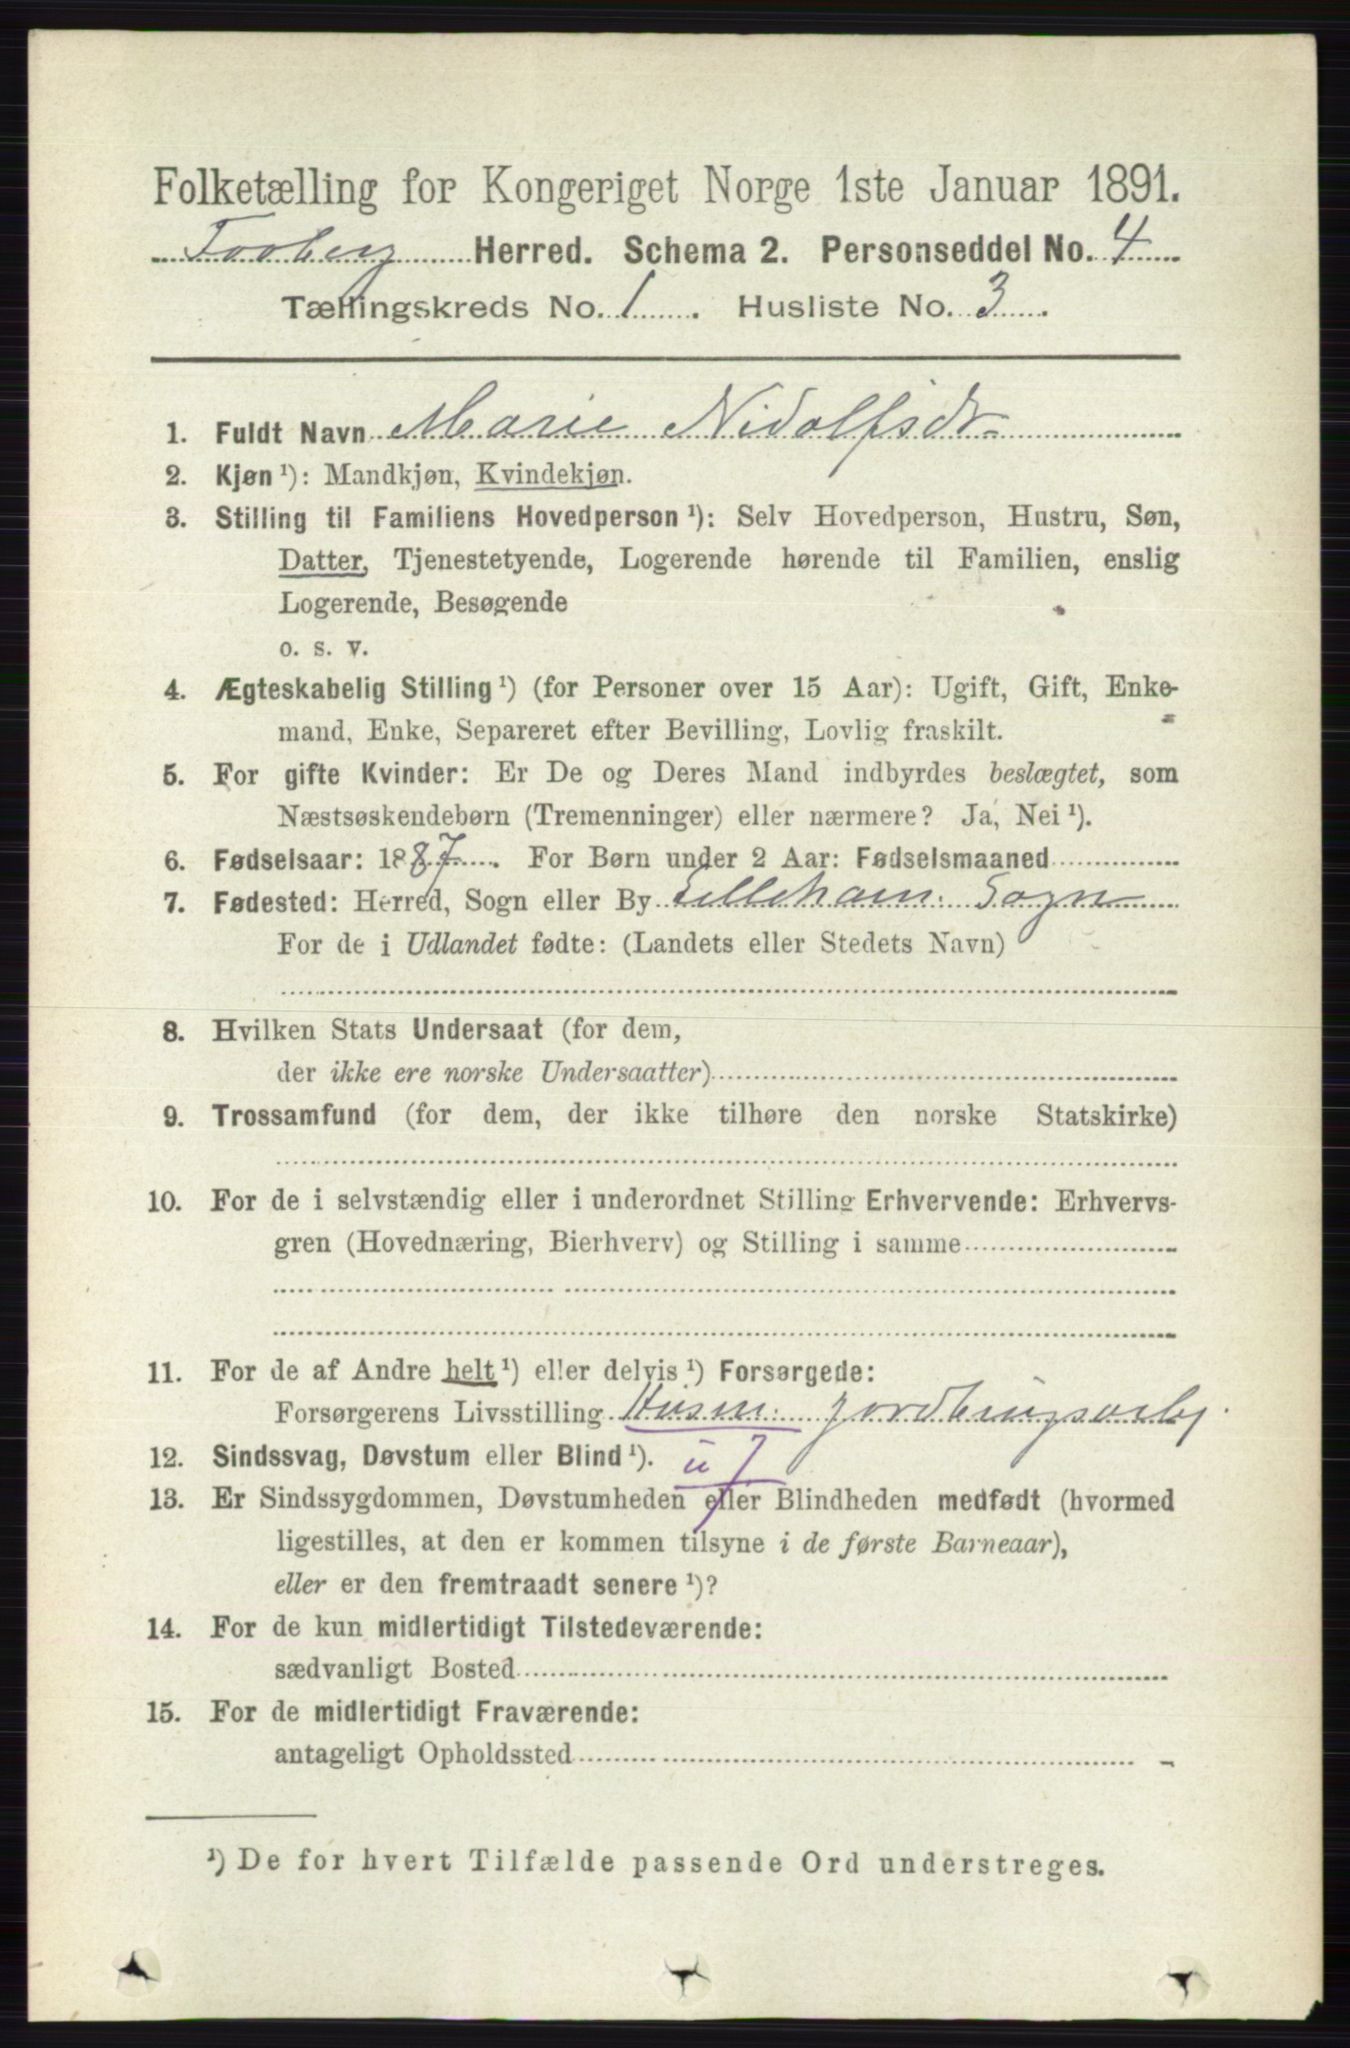 Folketælling for Kongeriget Norge 1ste Januar 1891.
Faaberg Herred. Schema 2. Personseddel No. 4
Tællingskreds No. 1. Husliste No. 3.
1. Fuldt Navn Marie Nidolfsdt
2. Kjøn ¹): Mandkjøn, Kvindekjøn.
3. Stilling til Familiens Hovedperson ¹): Selv Hovedperson, Hustru, Søn,
Datter, Tjenestetyende, Logerende hørende til Familien, enslig
Logerende, Besøgende
o. s. v.
4. Ægteskabelig Stilling ¹) (for Personer over 15 Aar): Ugift, Gift, Enke-
mand, Enke, Separeret efter Bevilling, Lovlig fraskilt.
5. For gifte Kvinder: Er De og Deres Mand indbyrdes beslægtet, som
Næstsøskendebørn (Tremenninger) eller nærmere? Ja, Nei ¹).
6. Fødselsaar: 1887. For Børn under 2 Aar: Fødselsmaaned
7. Fødested: Herred, Sogn eller By Lilleham. Sogn
For de i Udlandet fødte: (Landets eller Stedets Navn)
8. Hvilken Stats Undersaat (for dem,
der ikke ere norske Undersaatter)
9. Trossamfund (for dem, der ikke tilhøre den norske Statskirke)
10. For de i selvstændig eller i underordnet Stilling Erhvervende: Erhvervs-
gren (Hovednæring, Bierhverv) og Stilling i samme
11. For de af Andre helt ¹) eller delvis ¹) Forsørgede:
Forsørgerens Livsstilling Husm. jordbrugsarb.
12. Sindssvag, Døvstum eller Blind ¹). u 7
13. Er Sindssygdommen, Døvstumheden eller Blindheden medfødt (hvormed
ligestilles, at den er kommen tilsyne i de første Barneaar),
eller er den fremtraadt senere ¹)?
14. For de kun midlertidigt Tilstedeværende:
sædvanligt Bosted
15. For de midlertidigt Fraværende:
antageligt Opholdssted
¹) De for hvert Tilfælde passende Ord understreges.